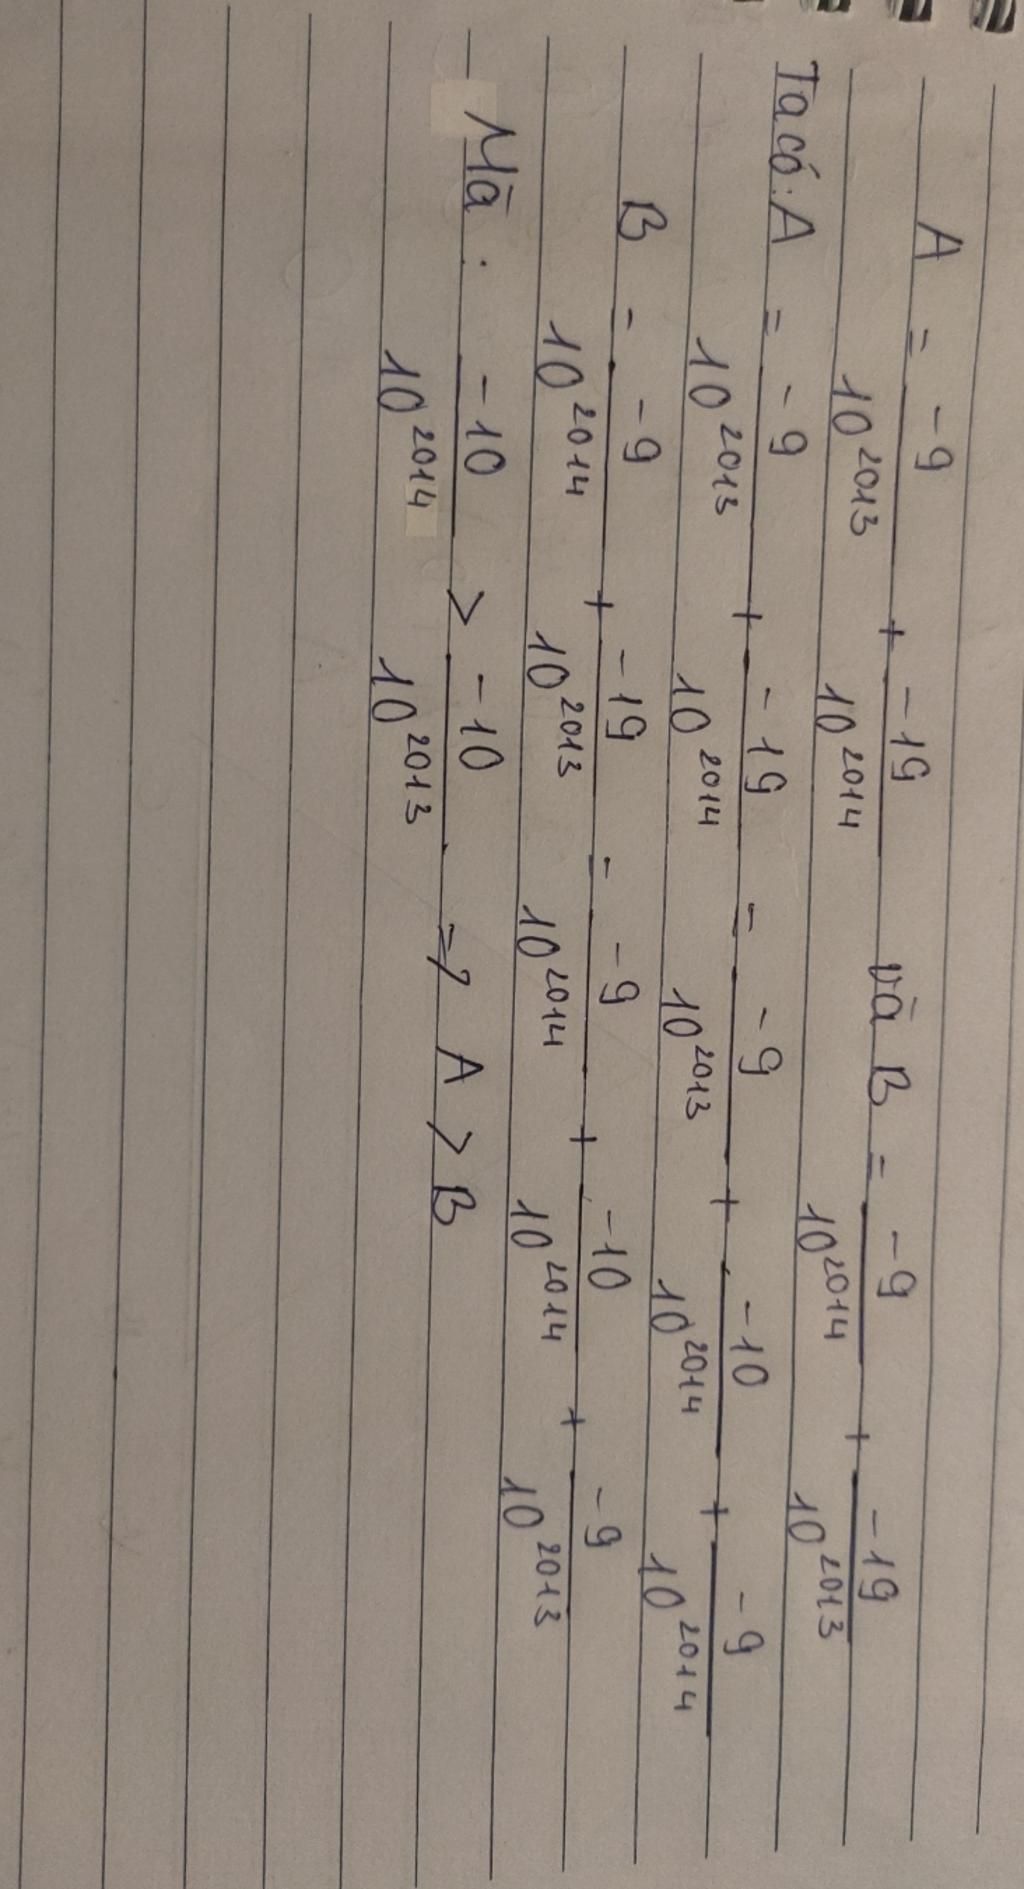 A = -9/10^2013 + -19/10^2014 và B = -9/10^2014 + -19/10^2013
Ta có: A = -9/10^2013 + -19/10^2014 = -9/10^2013 + -10/10^2014 + -9/10^2014
B = -9/10^2014 + -19/10^2013 = -9/10^2014 + -10/10^2014 + -9/10^2013
Mà : -10/10^2014 > -10/10^2013 => A > B